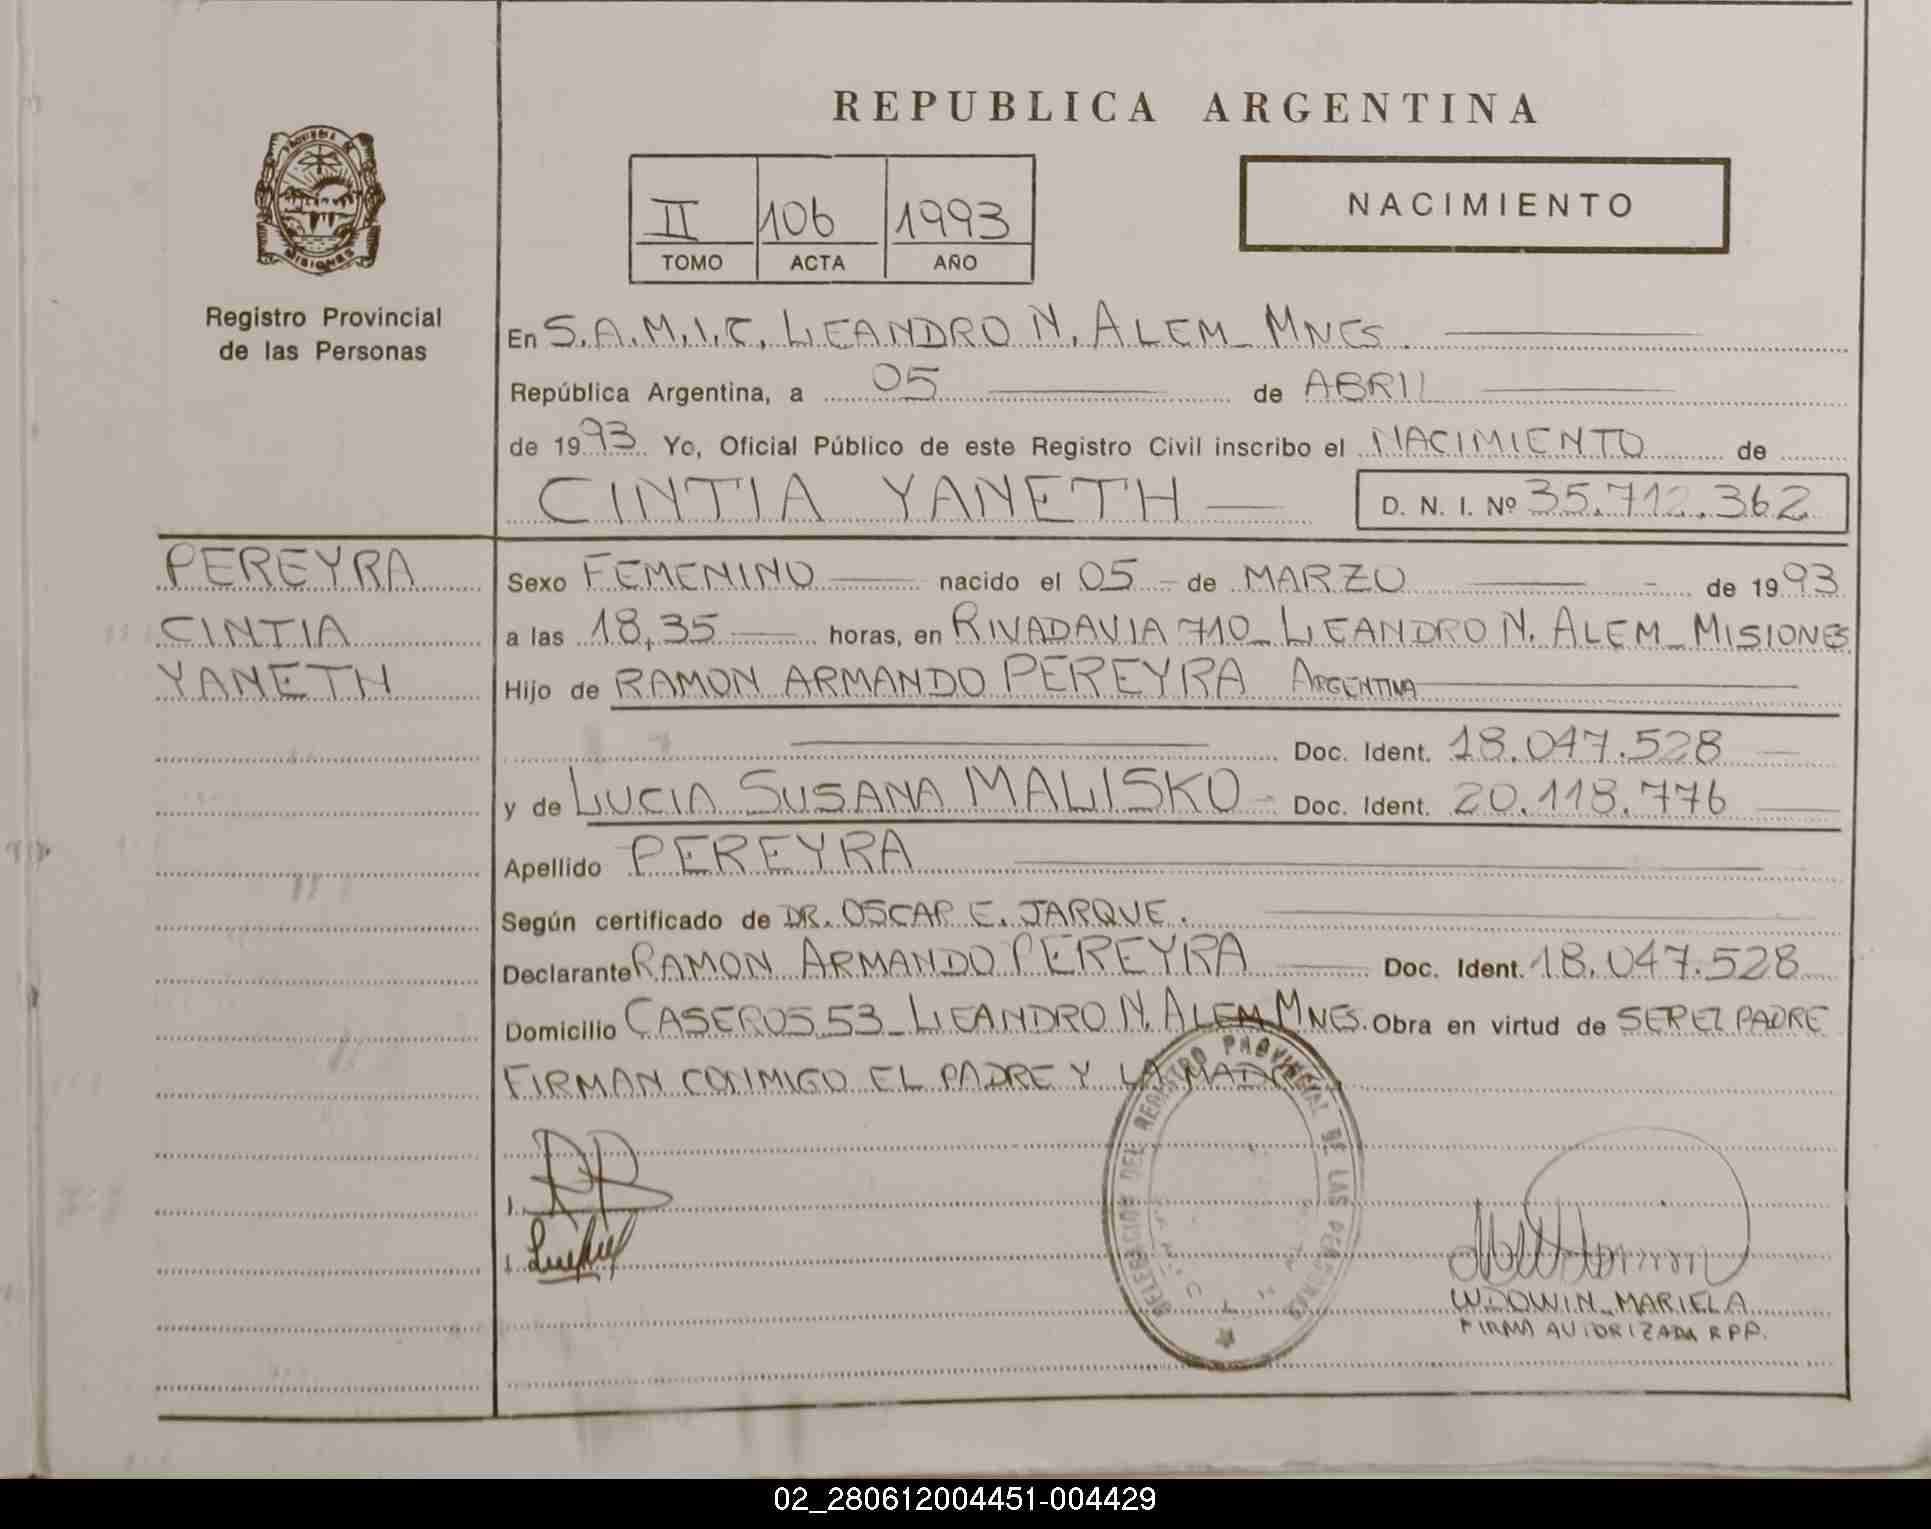 REPUBLICA ARGENTINA
PROVINCIA DE
MISIONES
Registro Provincial
de las Personas
II 106 1993
TOMO ACTA AÑO
NACIMIENTO
En S.A.M.I.C. LEANDRO N. ALEM_ MNES.
República Argentina, a 05 de ABRIL
de 1993 Yo, Oficial Público de este Registro Civil inscribo el NACIMIENTO de
CINTIA YANETH D. N. I. Nº 35.712.362
PEREYRA
CINTIA
YANETH
Sexo FEMENINO nacido el 05 de MARZO de 1993
a las 18,35 horas, en RIVADAVIA 710_ LEANDRO N. ALEM_ MISIONES
Hijo de RAMON ARMANDO PEREYRA ARGENTINA
Doc. Ident. 18.047.528
y de LUCIA SUSANA MALISKO Doc. Ident. 20.118.776
Apellido PEREYRA
Según certificado de DR. OSCAR E. JARQUE.
Declarante RAMON ARMANDO PEREYRA Doc. Ident. 18.047.528
Domicilio CASEROS 53_ LEANDRO N. ALEM MNES. Obra en virtud de SER EL PADRE
FIRMAN CONMIGO EL PADRE Y LA MADRE
DELEGACION DEL REGISTRO PROVINCIAL DE LAS PERSONAS
WDOWIN MARIELA
FIRMA AUTORIZADA RPP.
02_280612004451-004429